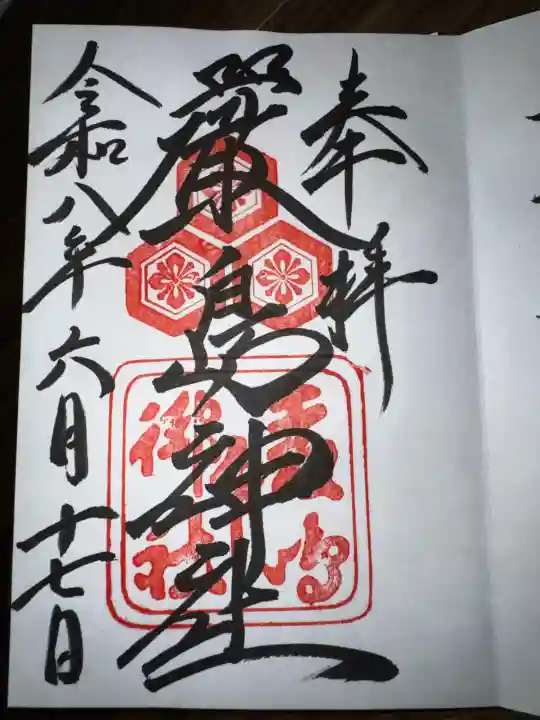 奉拝
嚴島神社
令和八年六月十七日